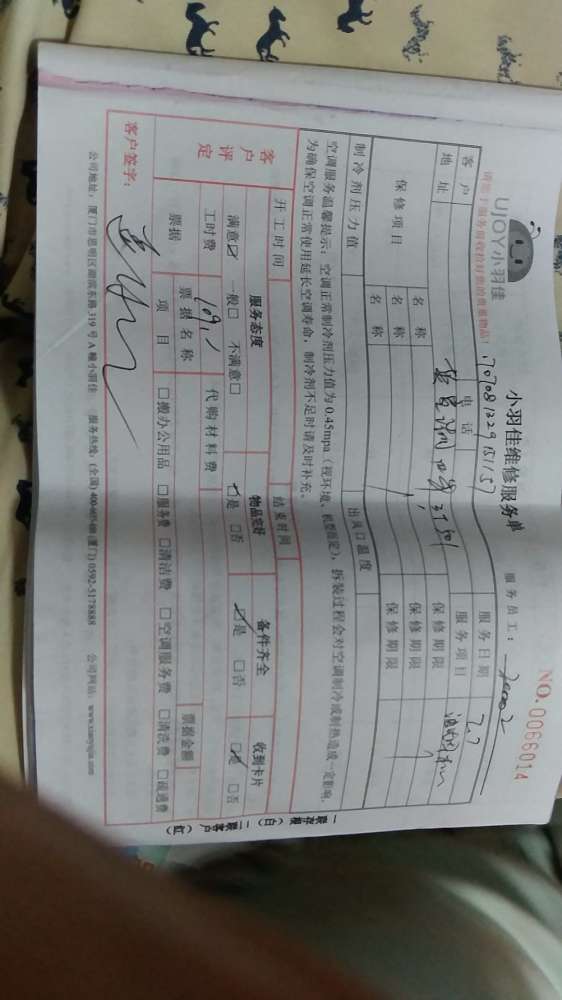 UJOY小羽佳
小羽佳维修服务单
NO.0066014
请您于服务前收拾好您的贵重物品!
服务员工：
客户
电话
服务日期 7.7
地址
服务项目
保修项目
名称
保修期限
名称
保修期限
名称
保修期限
制冷剂压力值
出风口温度
空调服务温馨提示：空调正常制冷剂压力值为0.45mpa（视环境、机型而定），拆装过程会对空调制冷或制热造成一定影响，
为确保空调正常使用延长空调寿命，制冷剂不足时请及时补充。
开工时间
结束时间
客户评定
服务态度
物品完好
备件齐全
收到卡片
满意☑ 一般□ 不满意□
☑是 □否
☑是 □否
☑是 □否
工时费
代购材料费
票据
票据名称
票据金额
项目
□搬办公用品 □服务费 □清洁费 □空调服务费 □清洗费 □疏通费
客户签字：
公司地址：厦门市思明区湖滨东路319号A幢小羽佳 服务热线：(全国) (厦门) 0592-5178888 公司网站：www.xiaoyujia.com
一联存根（白） 二联客户（红）